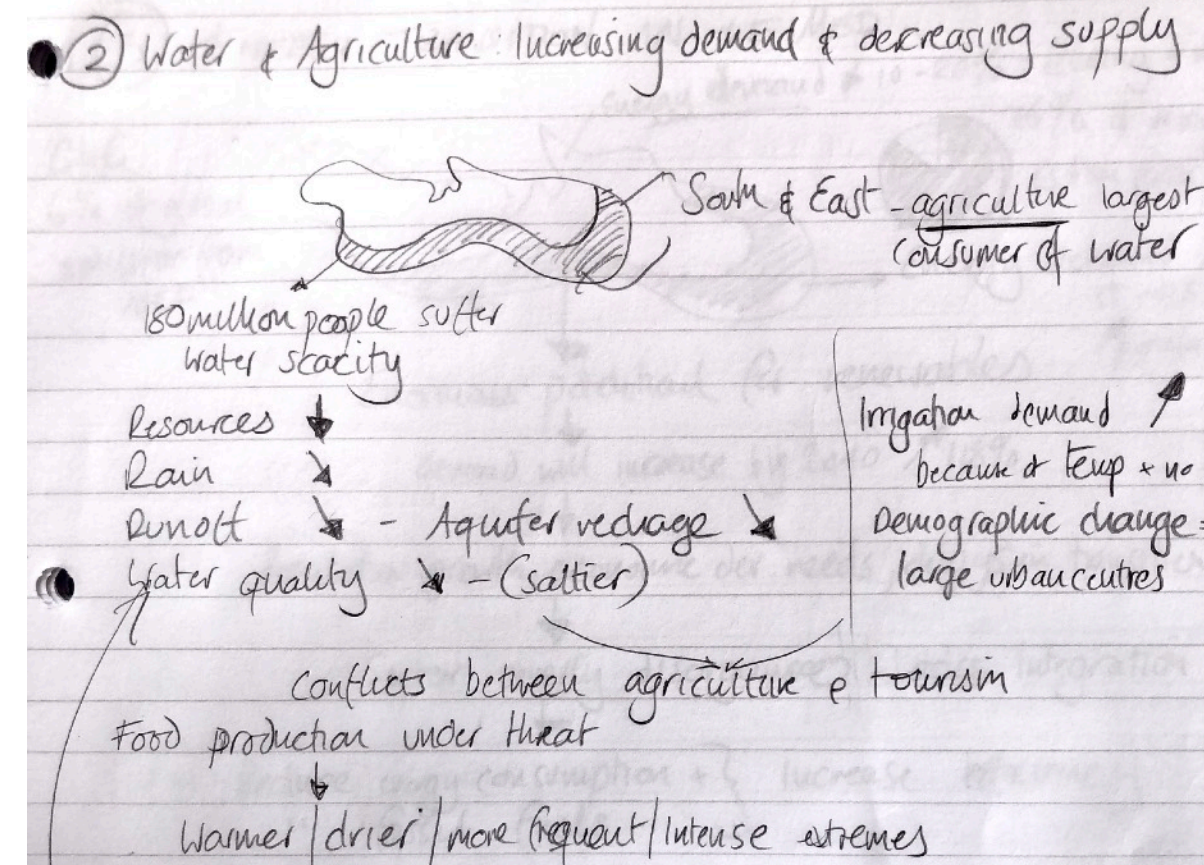 ② Water & Agriculture: Increasing demand & decreasing supply
South & East - agriculture largest
consumer of water
180 million people suffer
water scacity
Resources ↓
Rain ↘
Runoff ↘ - Aquifer rechage ↘
Water quality ↘ - (saltier)
Irrigation demand ↗
because of temp + no
Demographic change =
large urban centres
Conflicts between agriculture & tourism
Food production under threat
↓
Warmer / drier / more frequent / intense extremes